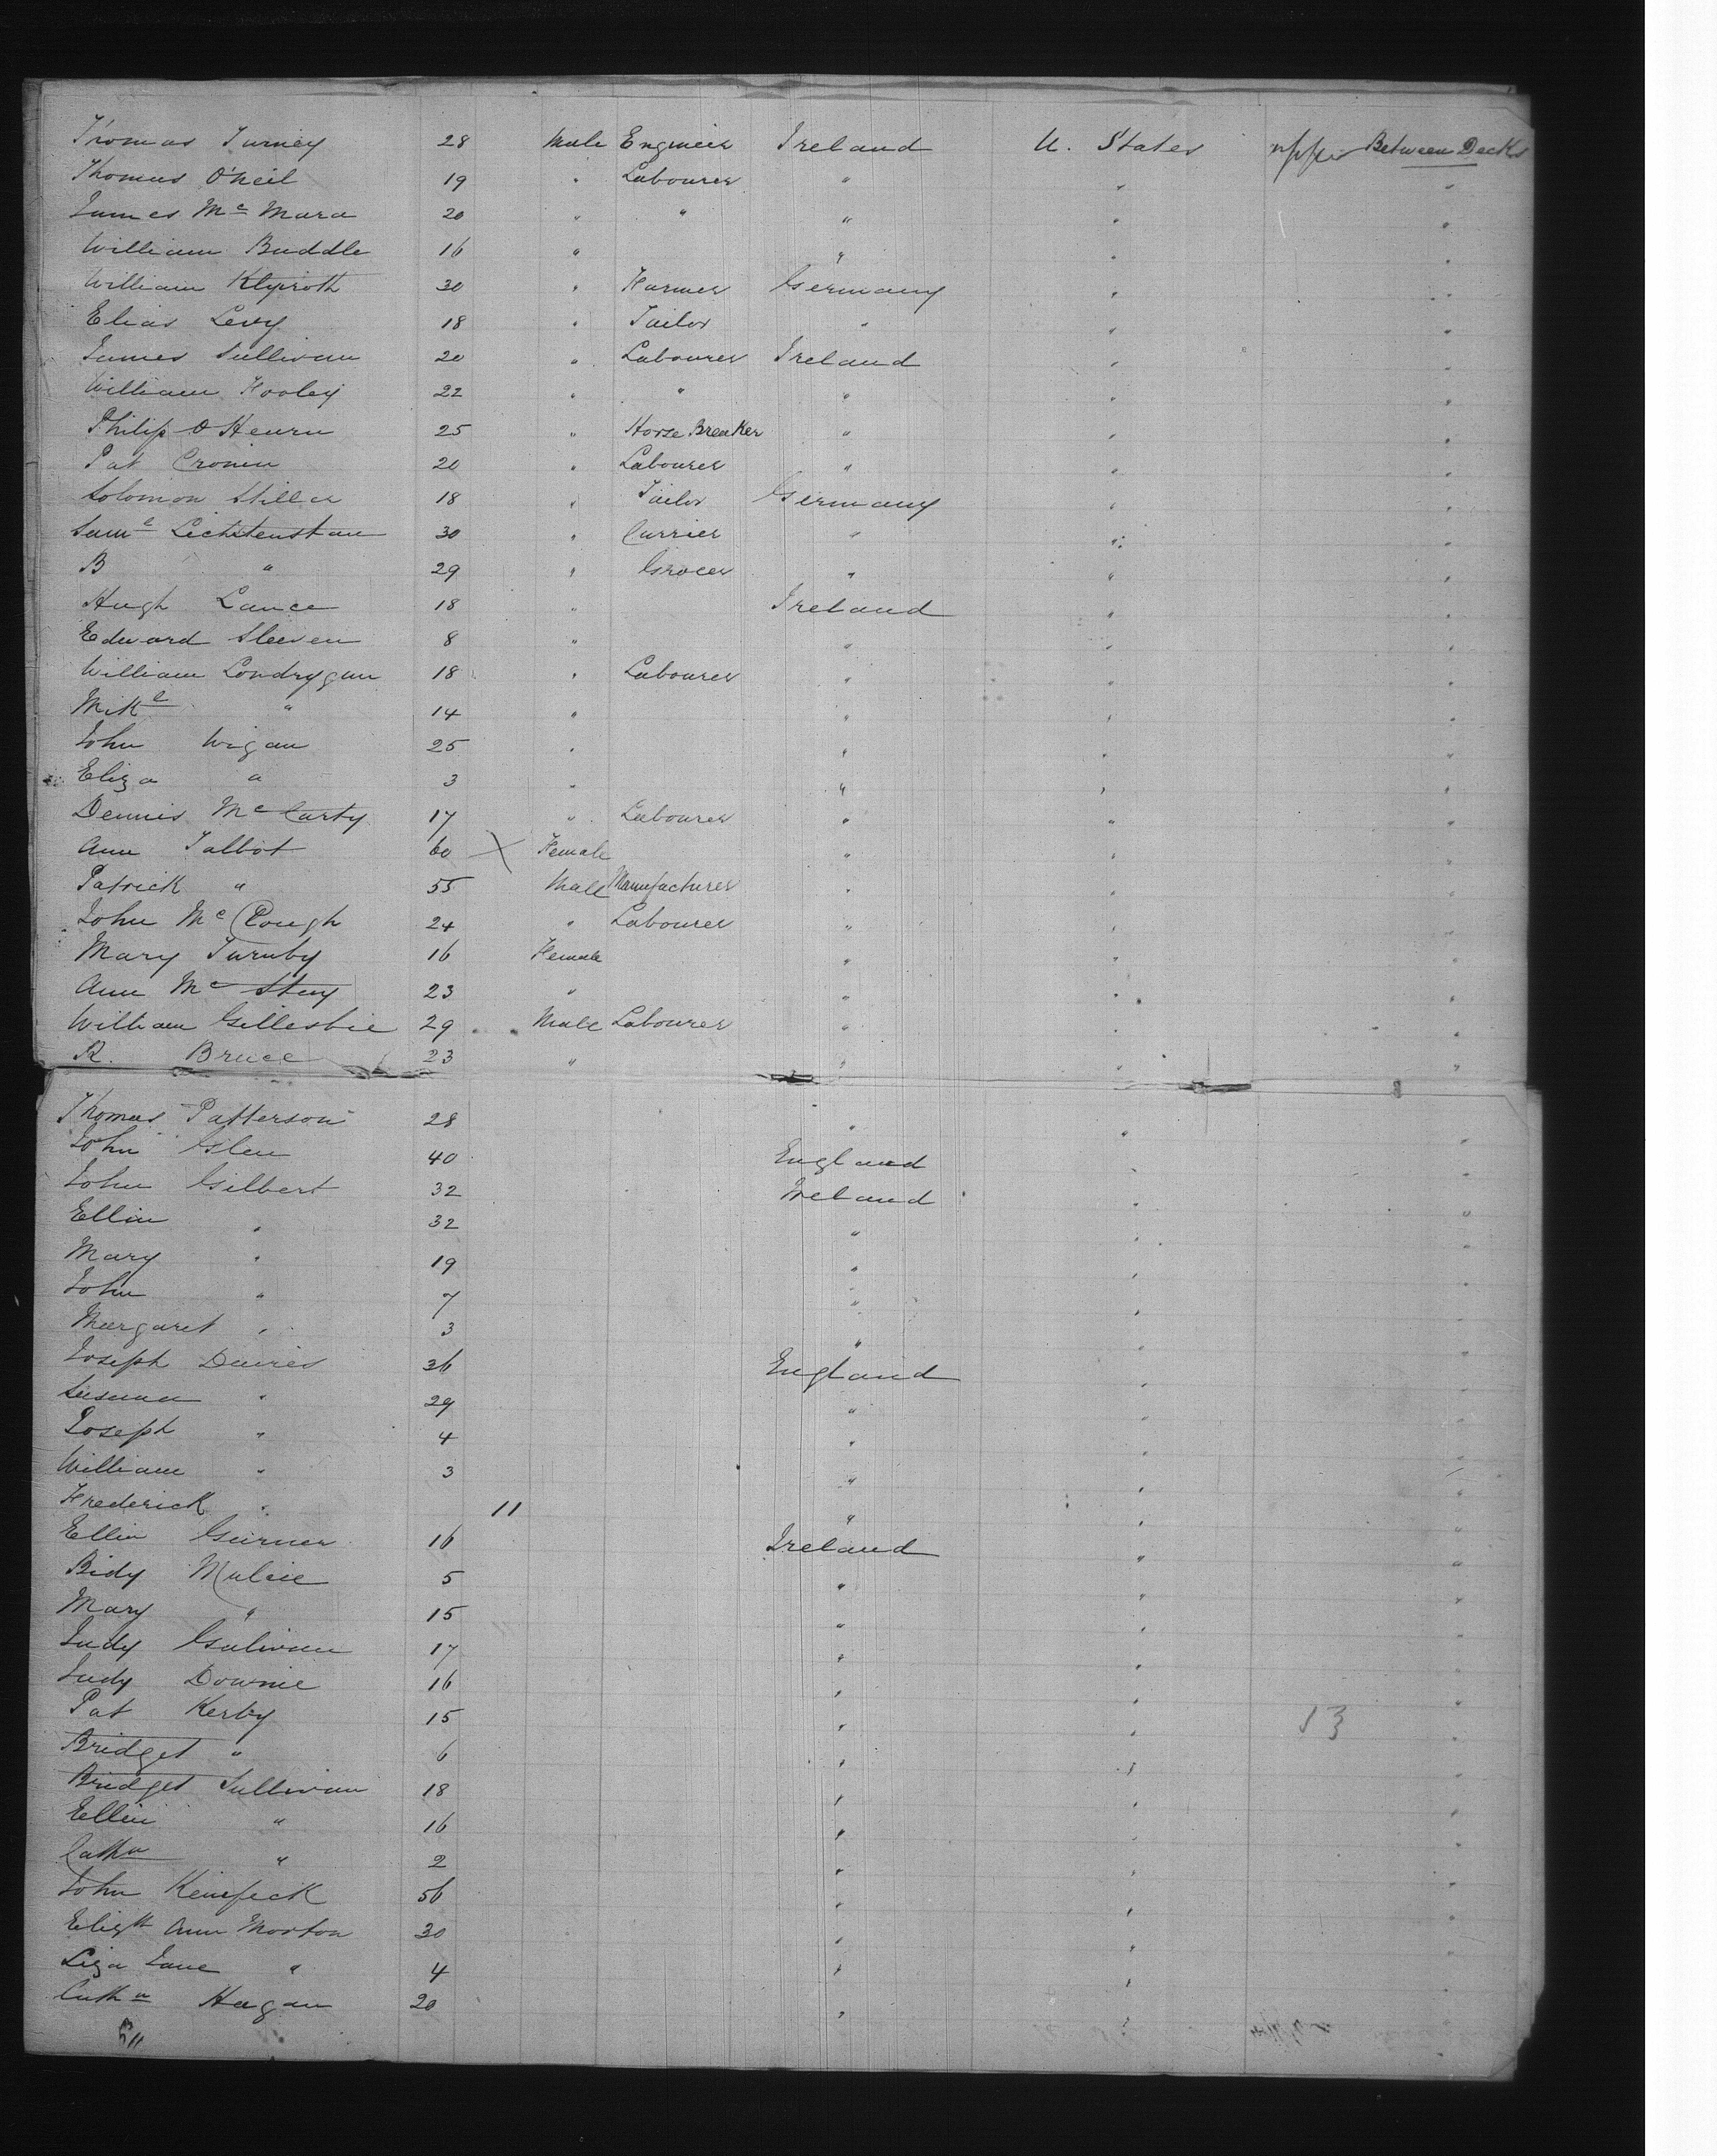 Thomas Turney 28 Male Engineer Ireland U. States upper Between Decks
Thomas O'Neil 19 " Labourer " " "
James Mc Mara 20 " " " " "
William Buddle 16 " " " "
William Klyroth 30 " Farmer Germany " "
Elias Levy 18 " Tailor " " "
James Sullivan 20 " Labourer Ireland " "
William Hooley 22 " " " " "
Philip O Hearn 25 " Horse Breaker " " "
Pat Cronin 20 " Labourer " " "
Solomon Stiller 18 " Tailor Germany " "
Saml Lichtenstan 30 " Currier " " "
B " 29 " Grocer " " "
Hugh Lance 18 " Ireland " "
Edward Sleeven 8 " " " "
William Londrygan 18 " Labourer " " "
Mikl " 14 " " " "
John Wigan 25 " " " "
Eliza " 3 " " " "
Dennis Mc Carty 17 " Labourer " " "
Ann Talbot 60 X Female " " "
Patrick " 55 Male Manufacturer " " "
John Mc Cough 24 " Labourer " " "
Mary Turnby 16 Female " " "
Ann Mc Stay 23 " " " "
William Gillesbie 29 Male Labourer " " "
R. Bruce 23 " " " "
Thomas Patterson 28 " " "
John Glen 40 England " "
John Gilbert 32 Ireland " "
Ellin " 32 " " "
Mary " 19 " " "
John " 7 " " "
Margaret " 3 " " "
Joseph Davies 36 England " "
Susanna " 29 " " "
Joseph " 4 " " "
William " 3 " " "
Frederick " 11 " " "
Ellin Gurner 16 Ireland " "
Bidy Mulcie 5 " " "
Mary " 15 " " "
Judy Galivan 17 " " "
Judy Downie 16 " " "
Pat Kerby 15 " " 13 "
Bridget " 6 " " "
Bridget Sullivan 18 " " "
Ellin " 16 " " "
Catha " 2 " " "
John Kenefeck 56 " " "
Elizth Ann Morton 30 " " "
Liza Jane " 4 " " "
Catha Hagan 20 " " "